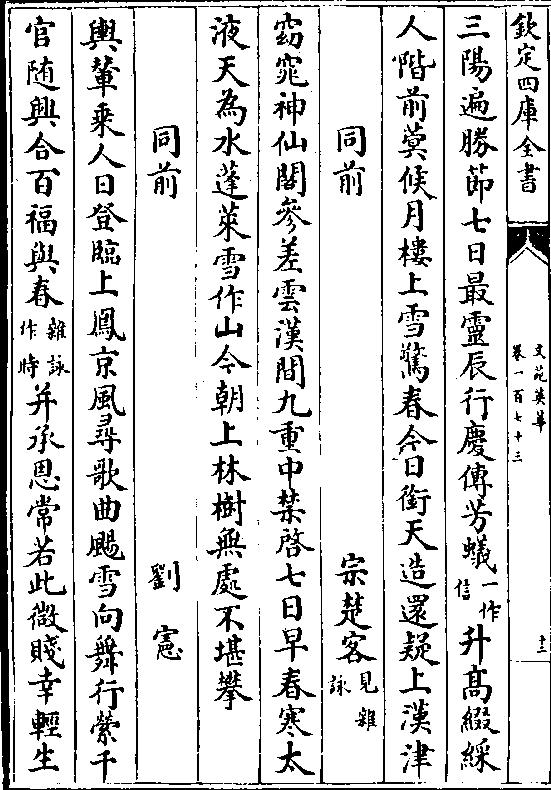 欽定四庫全書
文苑英華
卷一百七十三
十三
三陽遍勝節七日最靈辰行慶傳芳蟻一作信升髙綴綵
人階前蓂候月樓上雪驚春今日銜天造還疑上漢津
同前 宗楚客見雜詠
窈窕神仙閣參差雲漢間九重中禁啓七日早春寒太
液天為水蓬萊雪作山今朝上林樹無處不堪攀
同前 劉憲
輿輦乘人日登臨上鳳京風尋歌曲颺雪向舞行縈千
官随興合百福與春雜詠作時并承恩常若此微賤幸輕生